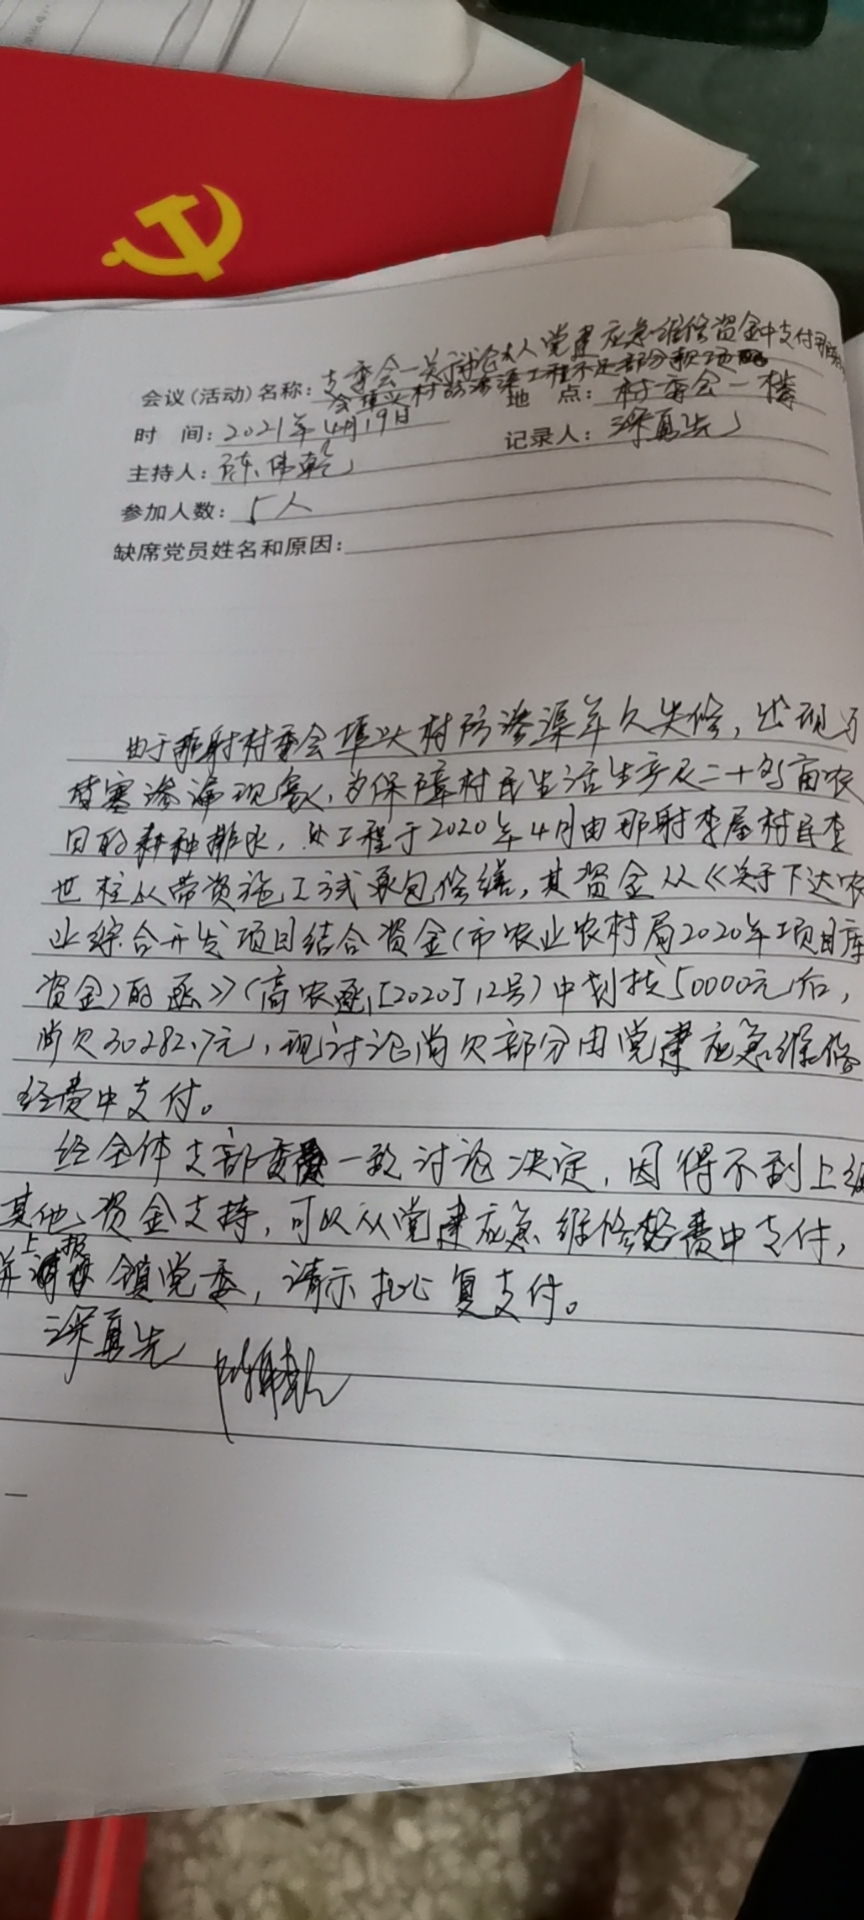 会议(活动)名称：支委会一关于讨论从党建应急维修资金中支付那射
会埇头村防渗渠工程不足部分款项
地 点：村委会一楼
时 间：2021年4月19日
记录人：梁勇先
主持人：陈伟乾
参加人数：5人
缺席党员姓名和原因：
由于那射村委会埇头村防渗渠年久失修，出现了
堵塞渗漏现象，为保障村民生活生产及二十多亩农
田的耕种排水，此工程于2020年4月由那射李屋村民李
世柱以带资施工式承包修缮，其资金从《关于下达农
业综合开发项目结合资金(市农业农村局2020年项目库
资金)的函》(高农函[2020]12号)中划拨50000元后，
尚欠30282.7元，现讨论尚欠部分由党建应急维修
经费中支付。
经全体支部委员一致讨论决定，因得不到上级
其他资金支持，可以从党建应急维修经费中支付，
并上报镇党委，请示批复支付。
梁勇先